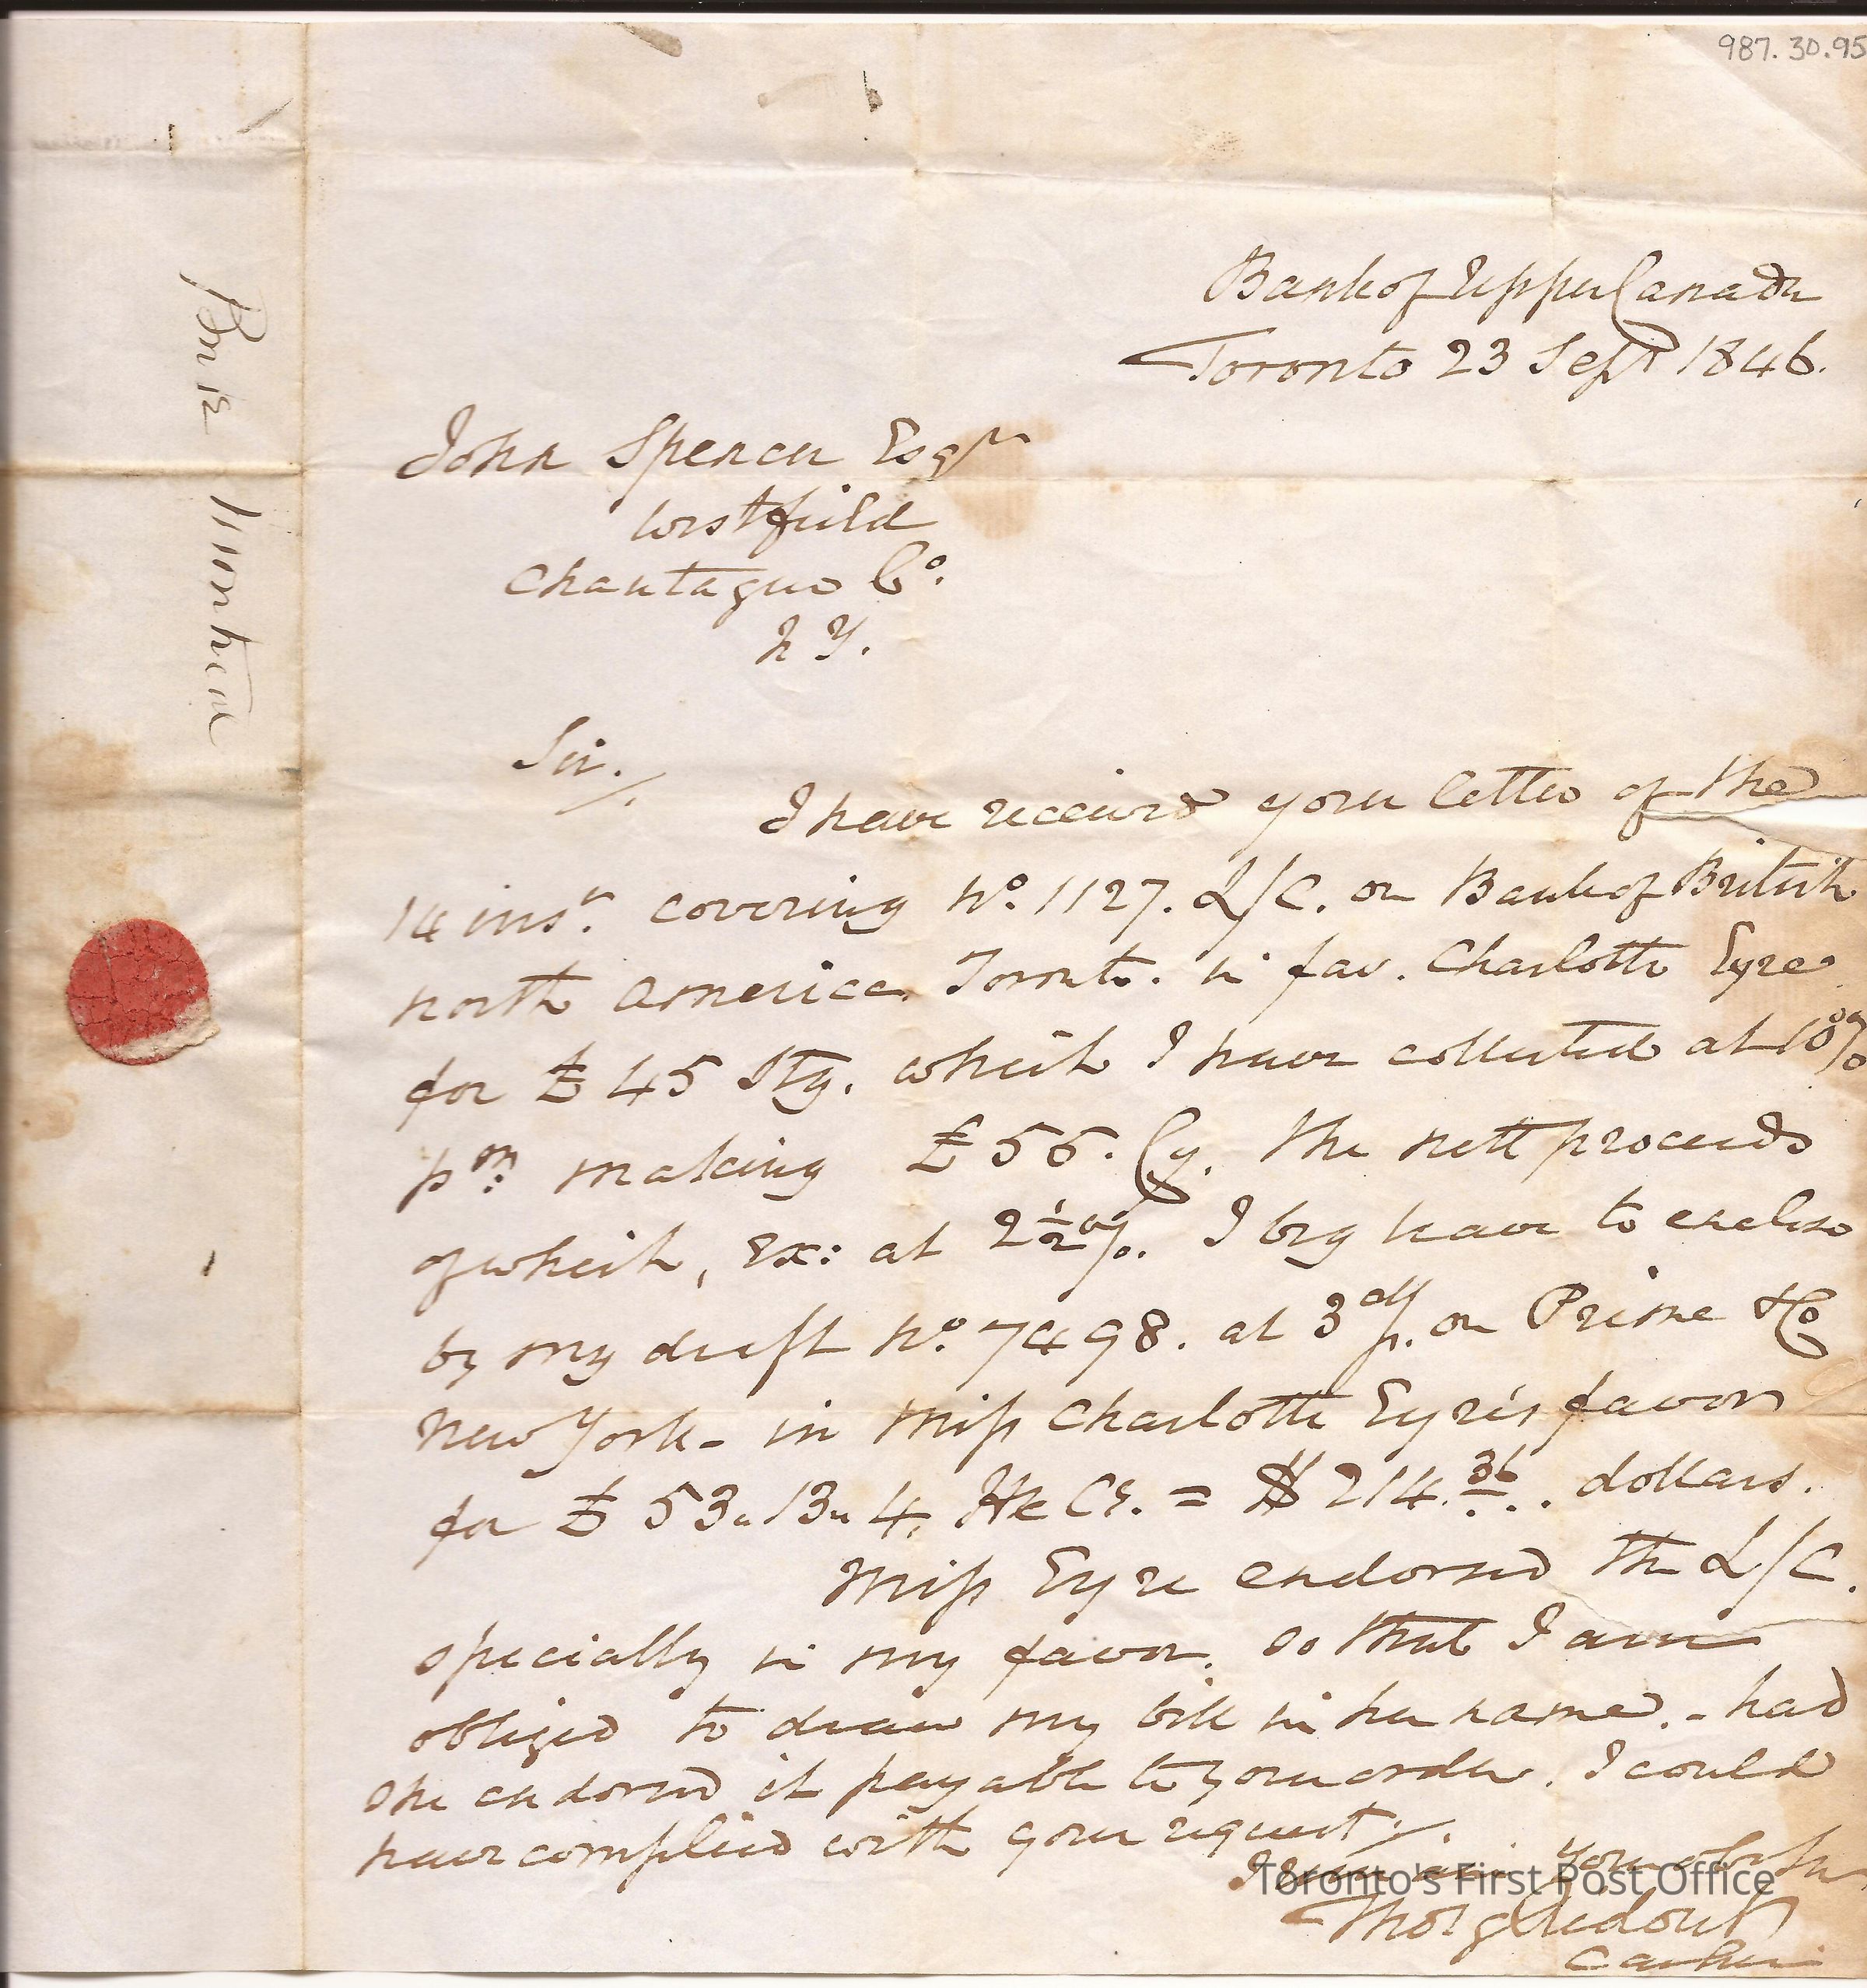 987.30.95
Bank of Upper Canada
Toronto 23 Sept 1846.
John Spencer Esqr
Westfield
Chautaque Co.
N Y.
Sir./.
I have received your letter of the
14 inst. covering No. 1127. L/C. on Bank of British
North America. Toronto. in fav. Charlotte Eyre
for £45 Stg. which I have collected at 10%
pm: making £55. Cy. The nett proceeds
of which, Ex: at 2½%. I beg leave to enclose
by my draft No. 7498. at 3 d/s. on Prime & Co
New York - in Miss Charlotte Eyre's favor
for £53.13.4, Hx Cy. = $214.36 dollars.
Miss Eyre endorsed the L/C.
specially in my favor. so that I am
obliged to draw my bill in her name. - had
she endorsed it payable to your order. I could
have complied with your request/.
I am Sir. Your ob. Sr
Thos G Ridout
Cashier
Toronto's First Post Office